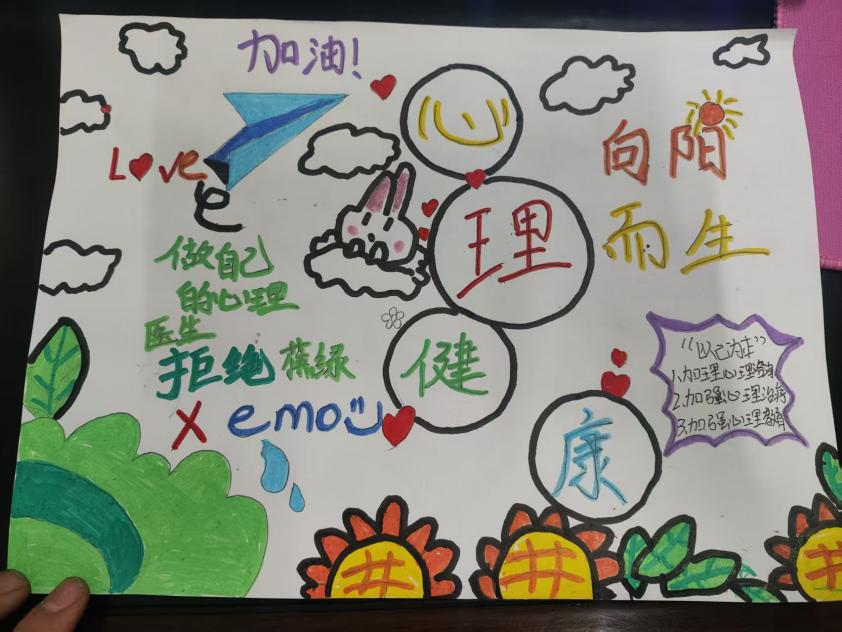 加油!
Love
心
理
健
康
向阳
而生
做自己
的心理
医生
拒绝 蕉绿
X emo
“以己为本”
1.加理心理
2.加强心理治疗
3.加强心理教育